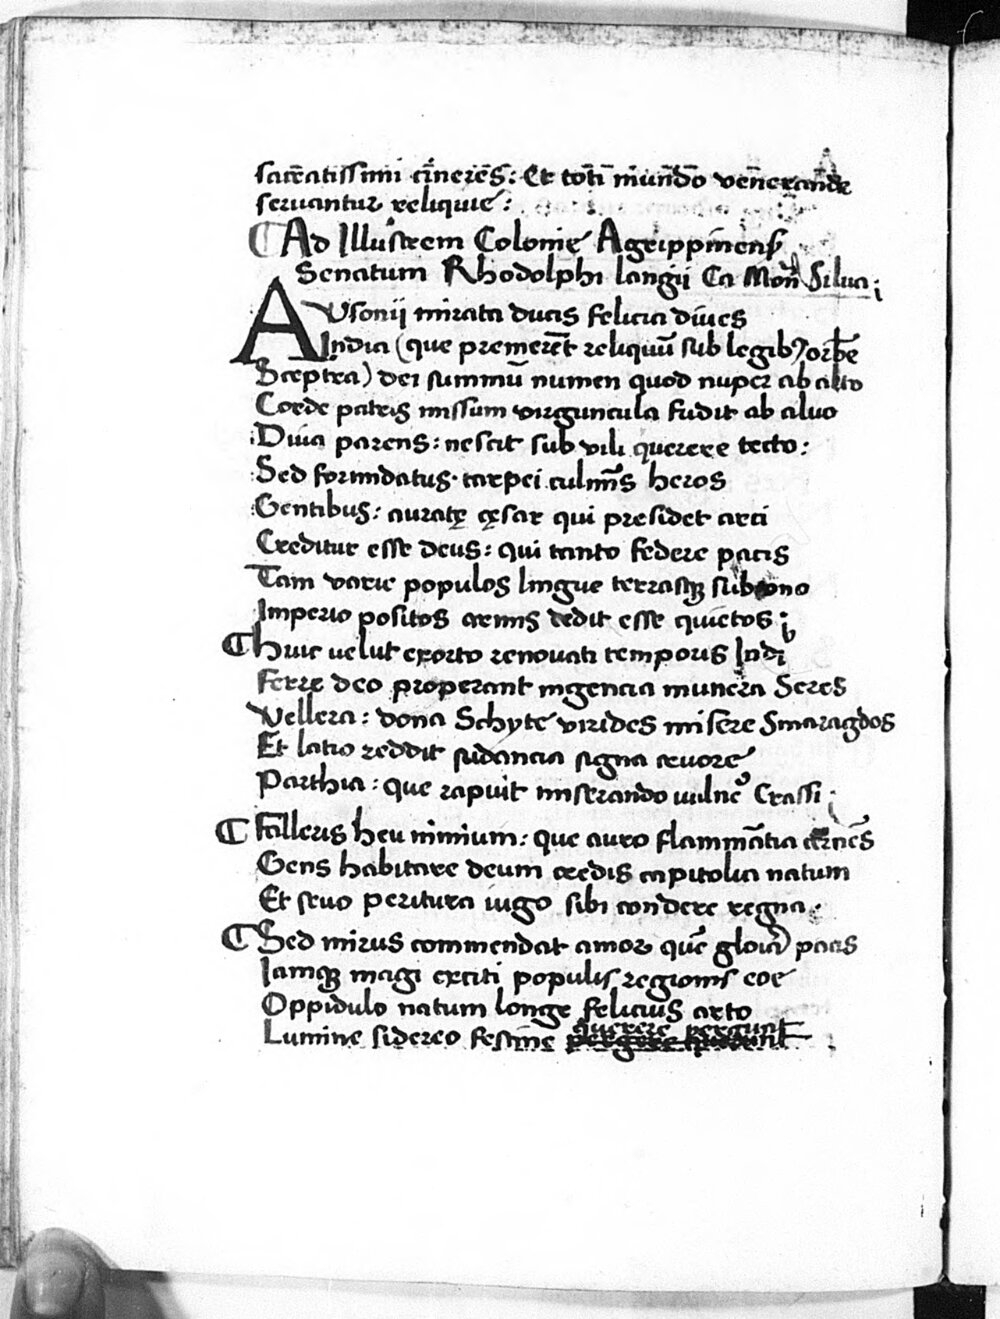 sacratissimi cineres: Et toti mundo venerande
seruantur reliquie:
Ad Illustrem Colonie Agrippinens
Senatum Rhodolphi langii Ca Mon Silua;
AVsonij mirata ducis felicia diues
India (que premeret reliquū sub legib9 orbe
Sceptra) dei summū numen quod nuper ab alto
Corde patris missum virguncula fudit ab aluo
Diua parens: nescit sub vili querere tecto:
Sed formidatus tarpei culminis heros
Gentibus: auratę cęsar qui presidet arci
Creditur esse deus: qui tanto federe pacis
Tam varie populos lingue terrasq subono
Imperio positos armis dedit esse quietos;
Huic uelut exorto renouati temporis Indi
Ferre deo properant ingencia munera Seres
Vellera: dona Schyte virides misere Smaragdos
Et latio reddit sudancia signa cruore
Parthia: que rapuit miserando uulne9 Crassi;
Falleris heu nimium: que auro flammātia cernēs
Gens habitare deum credis capitolia natum
Et seuo peritura iugo sibi condere regna.
Sed mirus commendat amor quē gloria pacis
Iamq magi exciti populis regionis eoe
Oppidulo natum longe felicius arto
Lumine sidereo festine querere pergunt